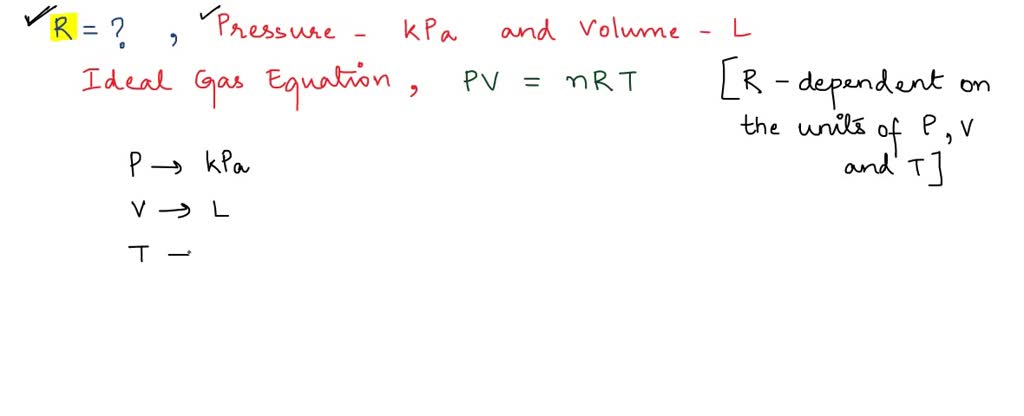 R = ? , Pressure - kPa and Volume - L
Ideal Gas Equation , PV = nRT [R - dependent on
the units of P, V
and T]
P → kPa
V → L
T -